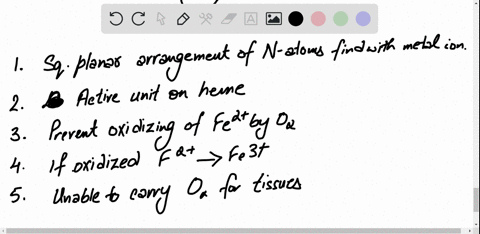 1. Sq. planar arrangement of N-atoms find with metal ion.
2. Active unit on heme
3. Prevent oxidizing of Fe2+ by O2
4. If oxidized F2+ → Fe3+
5. Unable to carry O2 for tissues